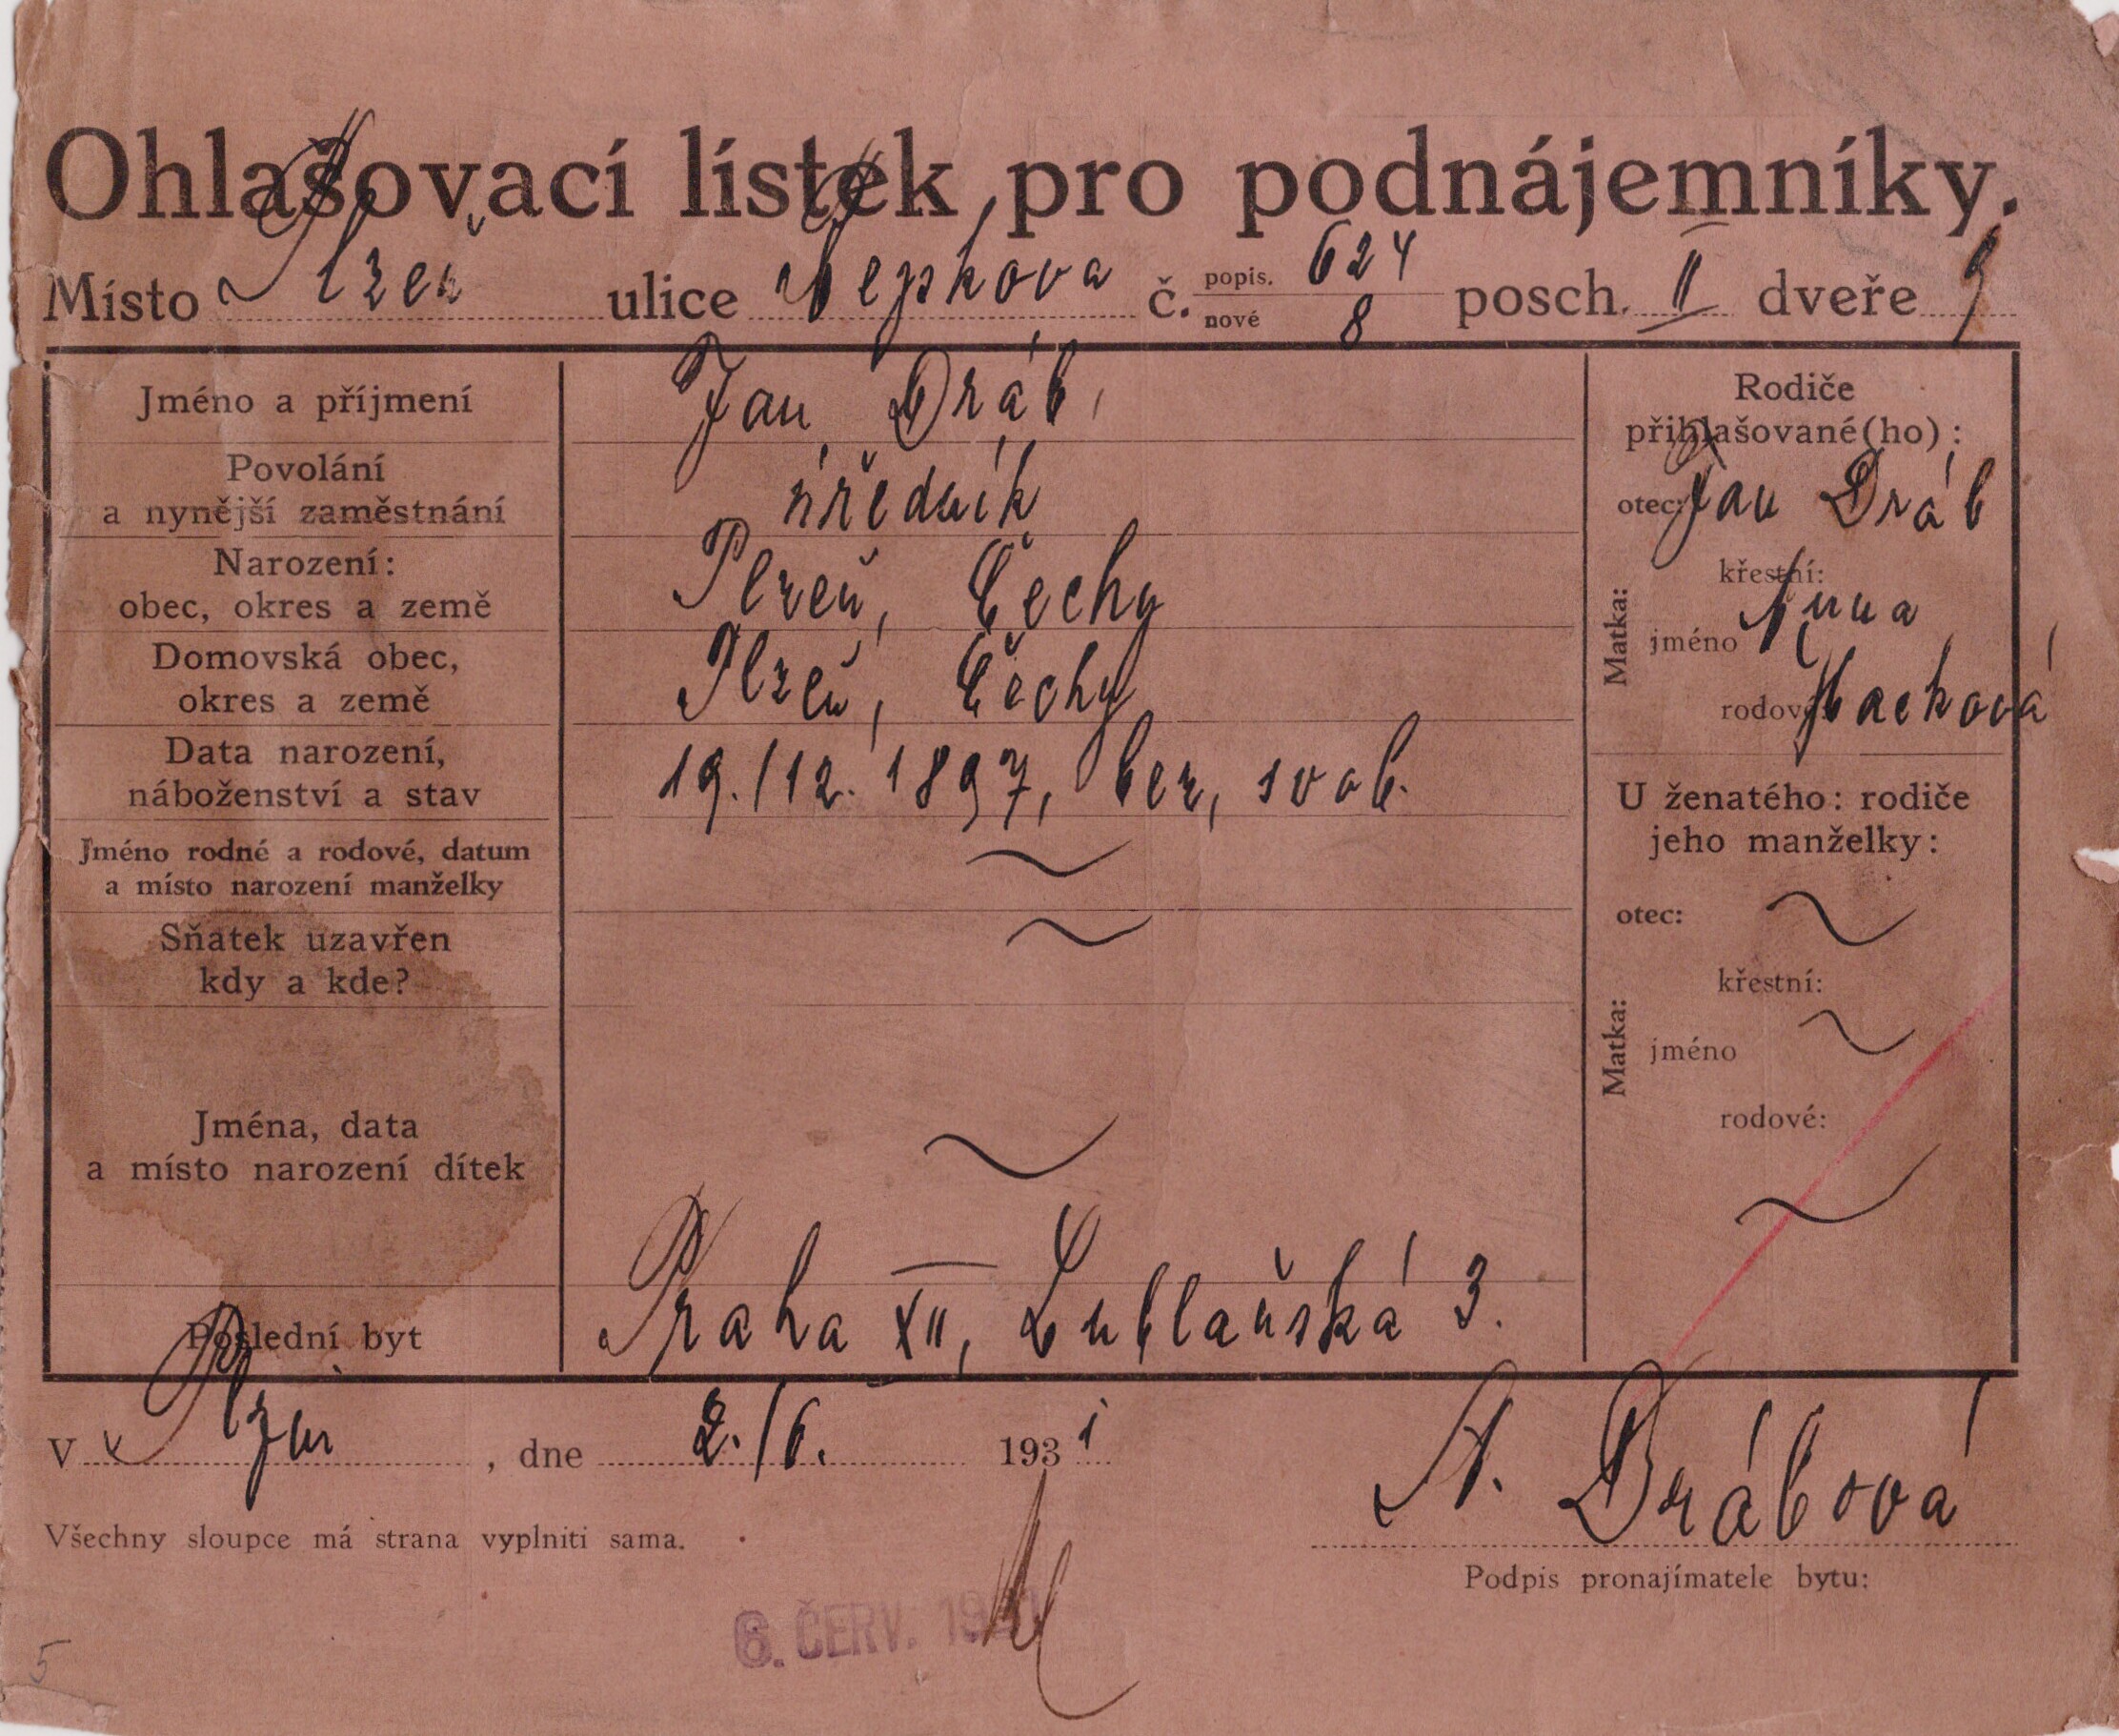 Ohlašovací lístek pro podnájemníky.
Místo Plzeň ulice č. popis. 624 nové 8 posch. II dveře 9
Jméno a příjmení Jan Dráb,
Povolání
a nynější zaměstnání úředník
Narození:
obec, okres a země Plzeň, Čechy
Domovská obec,
okres a země Plzeň, Čechy
Data narození,
náboženství a stav 19./12. 1897, bez, svob.
Jméno rodné a rodové, datum
a místo narození manželky
Sňatek uzavřen
kdy a kde?
Jména, data
a místo narození dítek
Poslední byt Praha XII, Lublaňská 3.
Rodiče
přihlašované(ho):
otec: Jan Dráb
Matka:
křestní:
jméno Anna
rodové:
U ženatého: rodiče
jeho manželky:
otec:
Matka:
křestní:
jméno
rodové:
V Plzni, dne 2./6. 1931
A. Drábová
Všechny sloupce má strana vyplniti sama.
Podpis pronajímatele bytu:
6. ČERV.
5